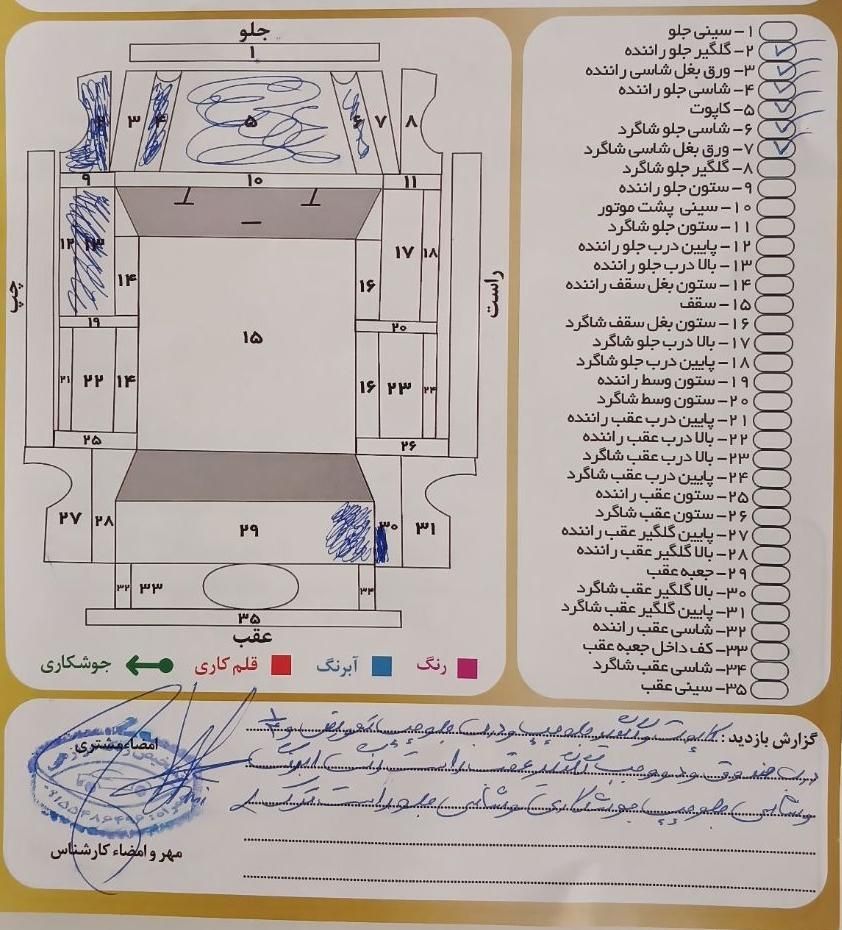 جلو
۱
۲
۳
۴
۵
۶
۷
۸
۹
۱۰
۱۱
۱۲
۱۳
۱۴
۱۵
۱۶
۱۷
۱۸
چپ
راست
۱۹
۲۰
۲۱
۲۲
۱۴
۱۶
۲۳
۲۴
۲۵
۲۶
۲۷
۲۸
۲۹
۳۰
۳۱
۳۲
۳۳
۳۴
۳۵
عقب
رنگ
آبرنگ
قلم کاری
جوشکاری
۱- سینی جلو
۲- گلگیر جلو راننده
۳- ورق بغل شاسی راننده
۴- شاسی جلو راننده
۵- کاپوت
۶- شاسی جلو شاگرد
۷- ورق بغل شاسی شاگرد
۸- گلگیر جلو شاگرد
۹- ستون جلو راننده
۱۰- سینی پشت موتور
۱۱- ستون جلو شاگرد
۱۲- پایین درب جلو راننده
۱۳- بالا درب جلو راننده
۱۴- ستون بغل سقف راننده
۱۵- سقف
۱۶- ستون بغل سقف شاگرد
۱۷- بالا درب جلو شاگرد
۱۸- پایین درب جلو شاگرد
۱۹- ستون وسط راننده
۲۰- ستون وسط شاگرد
۲۱- پایین درب عقب راننده
۲۲- بالا درب عقب راننده
۲۳- بالا درب عقب شاگرد
۲۴- پایین درب عقب شاگرد
۲۵- ستون عقب راننده
۲۶- ستون عقب شاگرد
۲۷- پایین گلگیر عقب راننده
۲۸- بالا گلگیر عقب راننده
۲۹- جعبه عقب
۳۰- بالا گلگیر عقب شاگرد
۳۱- پایین گلگیر عقب شاگرد
۳۲- شاسی عقب راننده
۳۳- کف داخل جعبه عقب
۳۴- شاسی عقب شاگرد
۳۵- سینی عقب
گزارش بازدید: کاپوت و گلگیر جلو چپ و درب جلو چپ تعویض و
درب صندوق و گلگیر عقب راست آبرنگ
و شاسی جلو چپ جوشکاری و شاسی جلو راست
امضاء مشتری
مهر و امضاء کارشناس